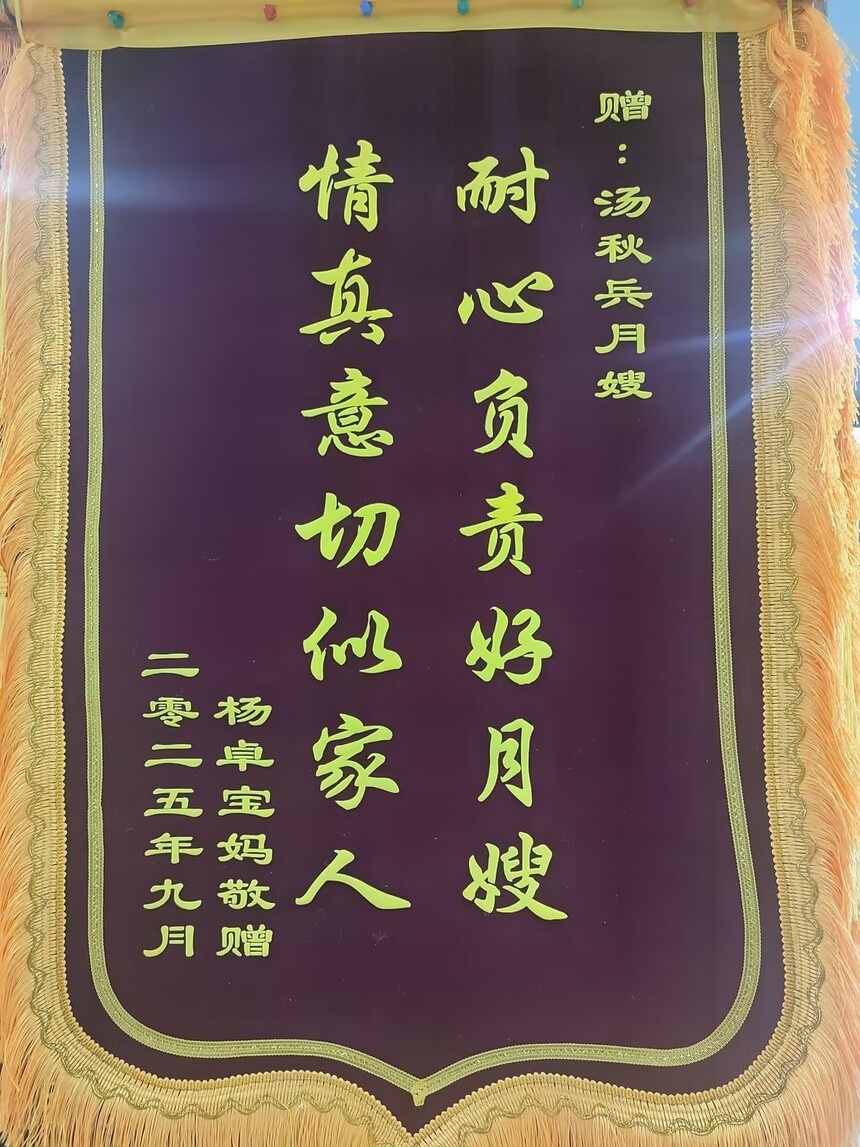 赠：汤秋兵月嫂
耐心负责好月嫂
情真意切似家人
杨卓宝妈敬赠
二零二五年九月